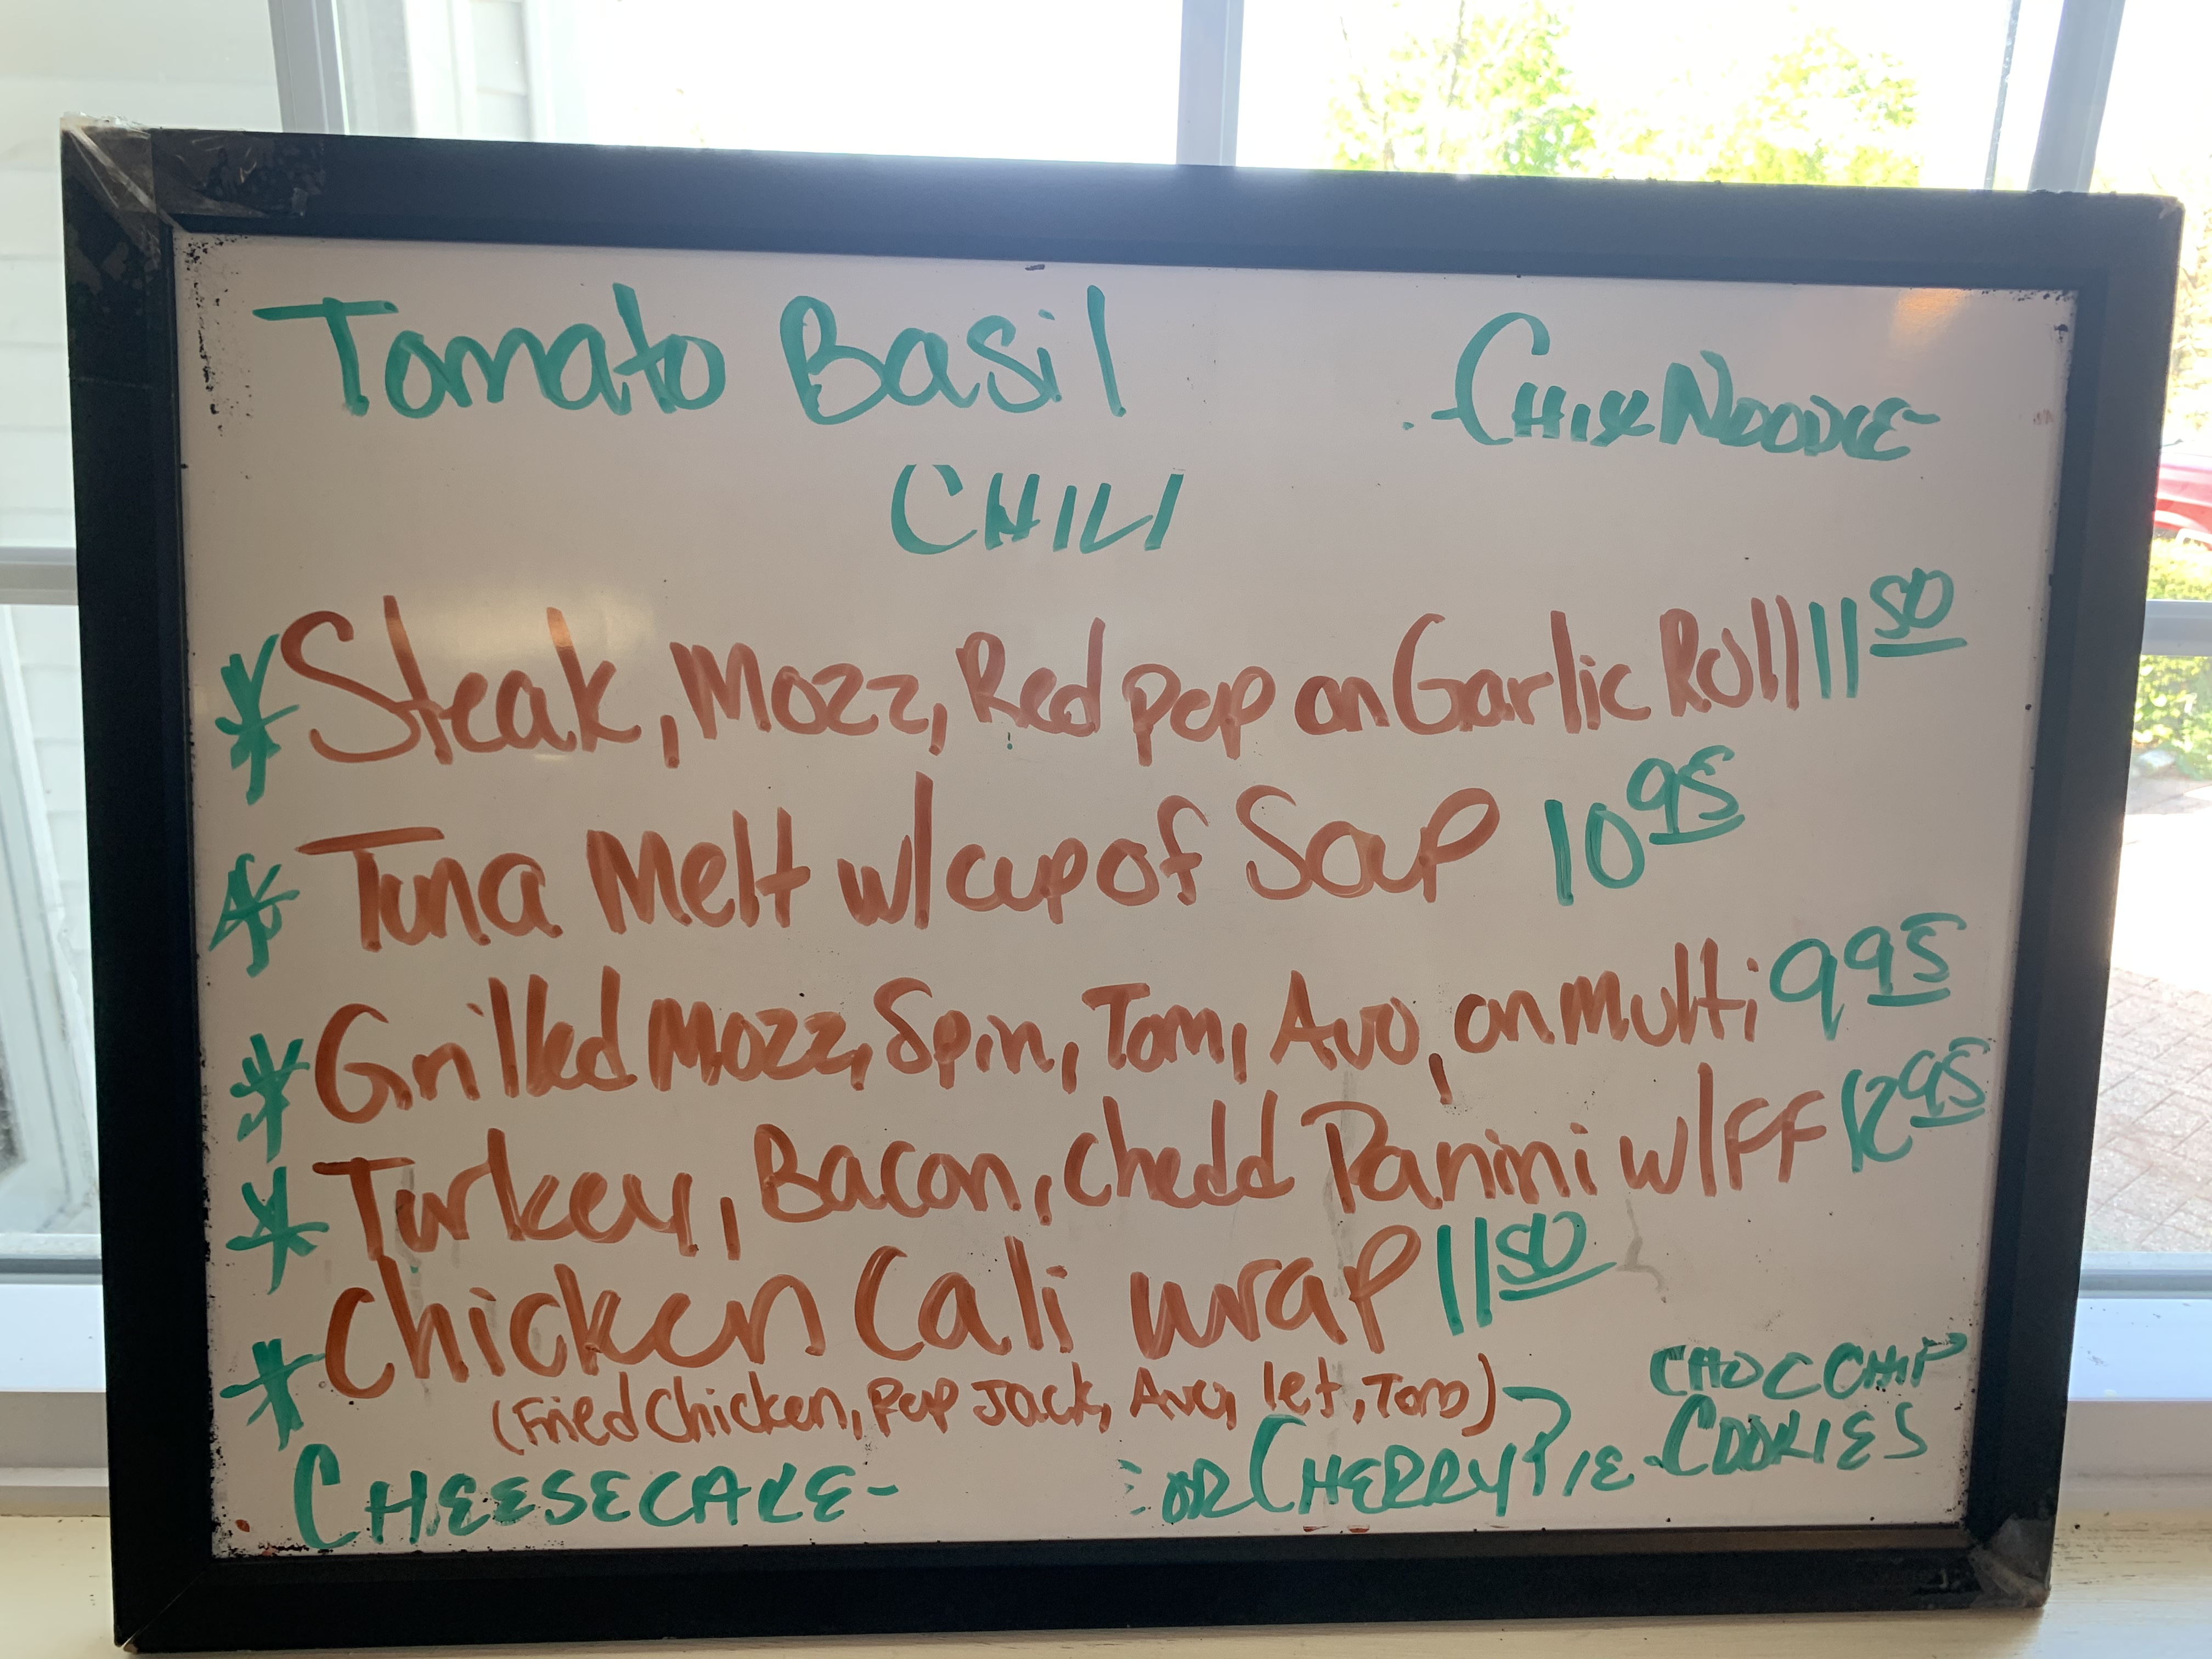 Tomato Basil - CHIX NOODLE
CHILI
* Steak, Mozz, Red pep on Garlic Roll 11 50
* Tuna Melt w/ cup of Soup 10 95
* Grilled Mozz, Spin, Tom, Avo, on Multi 9 95
* Turkey, Bacon, Chedd Panini w/ FF 12 95
* Chicken Cali wrap 11 50
(Fried Chicken, Pep Jack, Avo, let, Tom)
CHOC CHIP
CHEESECAKE - OR CHERRY PIE - COOKIES